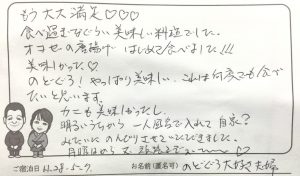 もう大大満足♡♡♡
食べ過ぎなぐらい美味しい料理でした。
オコゼの唐揚げはじめて食べました!!!
美味しかった♡
のどぐろ!やっぱり美味しい これは何度でも食べ
たいと思います。
カニも美味しかったし、
明るいうちから一人風呂で入れて自家?
みたいにのんびりさせていただきました。
ご宿泊日 H.28.5.27
お名前(匿名可) のどぐろ大好き夫婦